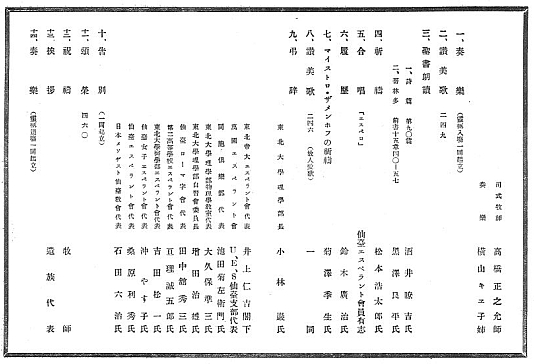 司式牧師 高橋正之允師
奏樂 横山キエ子姉
一、奏樂 (靈柩入場一同起立)
二、讃美歌 二四九
三、聖書朗讀
一、詩篇 第九〇篇 酒井瞭吉氏
二、哥林多 前書十五章四〇―五七 黒澤良平氏
四、祈禱 松本浩太郎氏
五、合唱 「エスペロ」 仙臺エスペラント會員有志
六、履歷 鈴木廣治氏
七、マイストロ・ザメンホフの祈禱 菊澤季生氏
八、讃美歌 二四六 (故人愛歌) 一同
九、弔辭
東北大學理學部長 小林巖氏
東北帝大エスペラント會代表 井上仁吉閣下
萬國エスペラント會 U.E.S仙臺支部代表
同胞俱樂部代表 池田菊左衞門氏
東北大學理學部物理學教室代表 大久保準三氏
東北大學理學部自習會委員長 増田治雄氏
仙臺ローマ字會代表 田中舘秀三氏
第二高等學校エスペラント會代表 亘理誠五郎氏
東北大學醫學部エスペラント會代表 吉田松一氏
仙臺女子エスペラント會代表 沖やす子氏
仙臺エスペラント會代表 桑原利秀氏
日本メソヂスト仙臺教會代表 石田六治氏
十、告別 (一同起立)
十一、頌榮 四六〇
十二、祝禱 牧師
十三、挨拶 遺族代表
十四、奏樂 (靈柩退場一同起立)